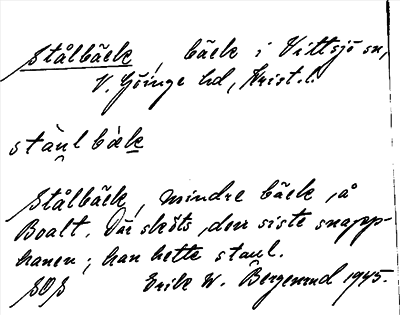 Stålbäck, bäck i Vittsjö sn,
V. Göinge hd, Krist. l.
ståu̯l bæk
Stålbäck, mindre bäck, å
Boalt. Där sköts, den siste snapp-
hanen; han hette staul.
SOS Erik W. Bergenrud 1945.